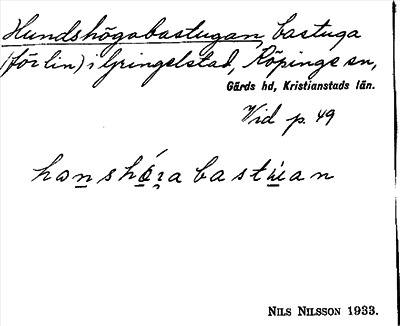 Hundshögabastugan, bastuga
(för lin) i Gringelstad, Köpinge sn,
Gärds hd, Kristianstads län.
Vid p. 49
NILS NILSSON 1933.